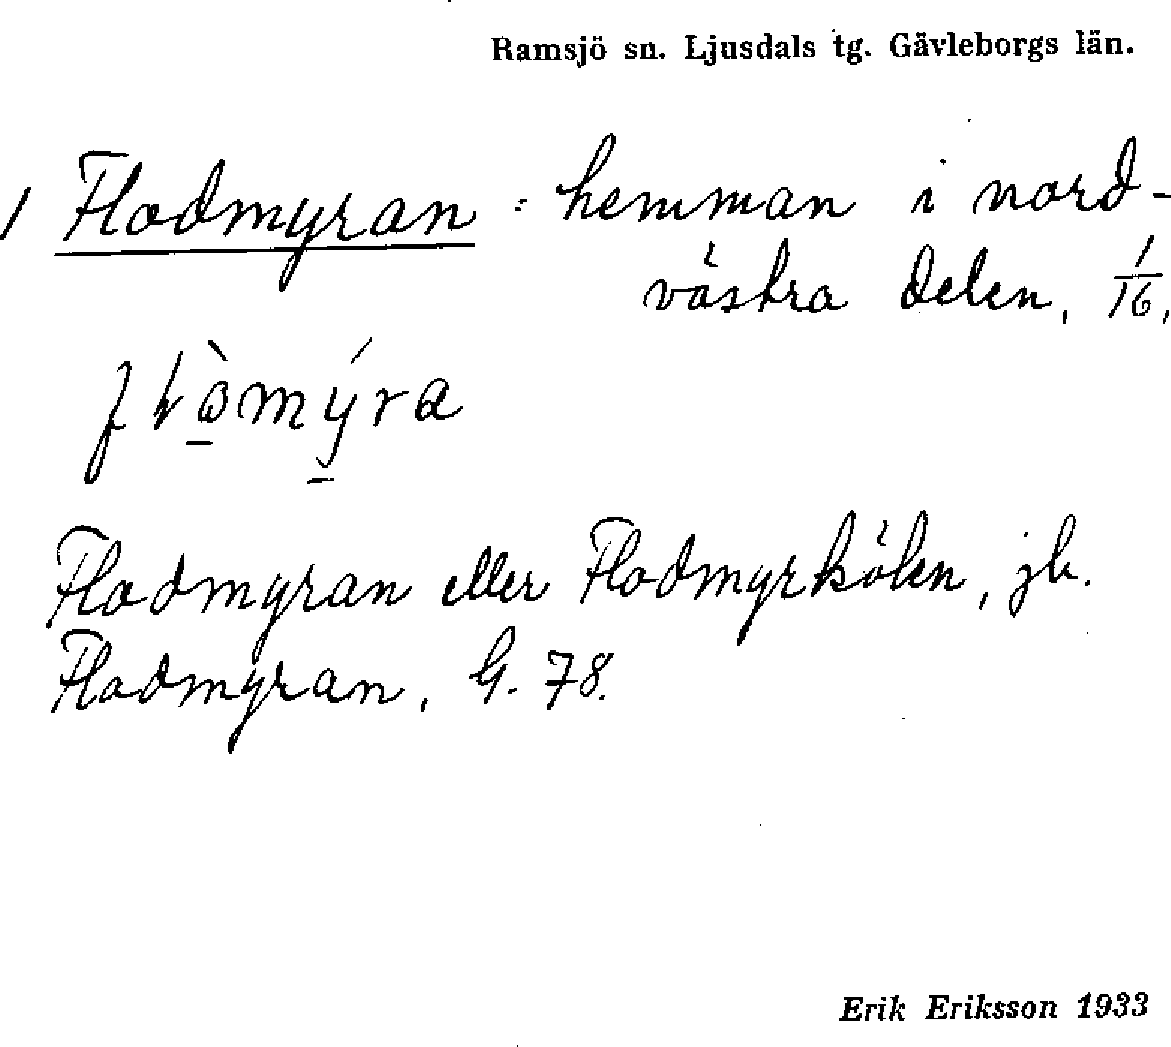 Ramsjö sn. Ljusdals tg. Gävleborgs län.
/ Flodmyran : hemman i nord-
västra delen, 1/16,
Flodmyran eller Flodmyrkölen, jb.
Flodmyran, G. 78.
Erik Eriksson 1933